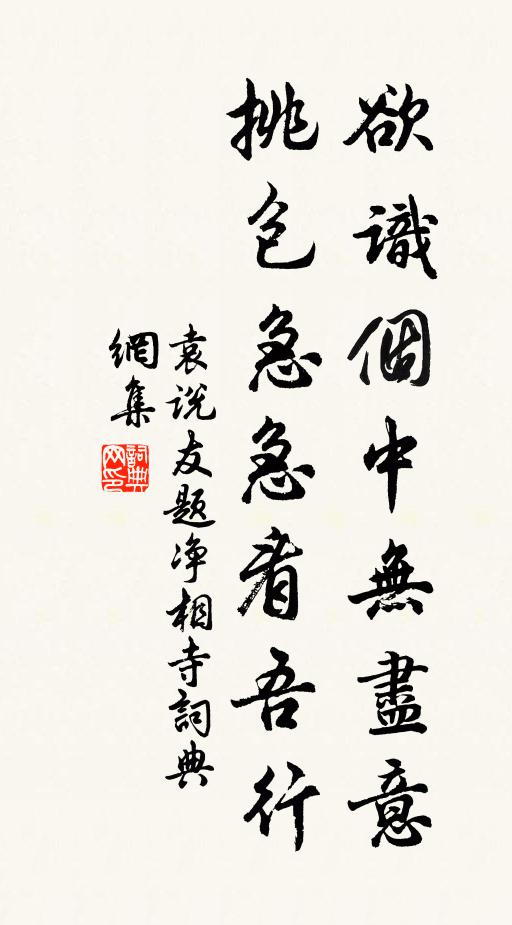 欲識個中無盡意
挑包急急看吾行
袁说友题净相寺詞典
網集
詞典网印